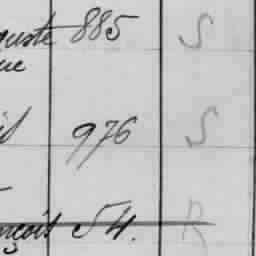 guste 885 S
ue
976 S
nçois 54. R